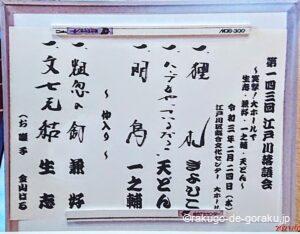 第一四三回 江戸川落語会
~実撃!大ホールで
生志・兼好・一之輔・天どん~
令和三年二月二日(火)
江戸川区総合文化センター 大ホール
一、狸札 きよひこ
天どん
一、明烏 一之輔
~仲入り~
一、粗忽の釘 兼好
一、文七元結 生志
(お囃子 金山はる)
MGB-300
©rakugo-de-goraku.jp